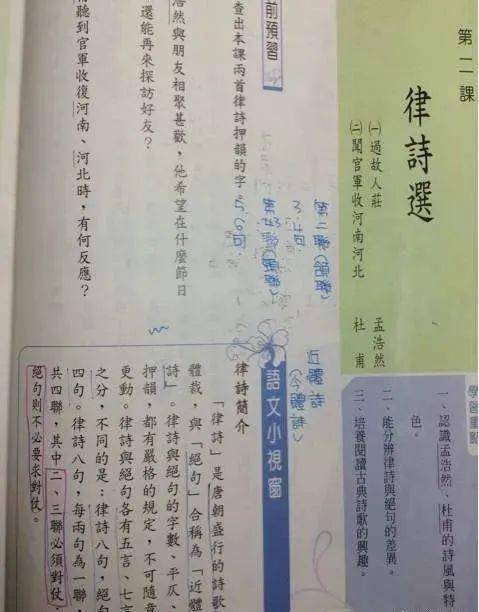 第二課
律詩選
㈠過故人莊　孟浩然
㈡聞官軍收河南河北　杜甫
學習重點
一、認識孟浩然、杜甫的詩風與特
色。
二、能分辨律詩與絕句的差異。
三、培養閱讀古典詩歌的興趣。
前預習
查出本課兩首律詩押韻的字。
浩然與朋友相聚甚歡，他希望在什麼節日
還能再來探訪好友？
聽到官軍收復河南、河北時，有何反應？
第二聯(頷聯)
3、4句
第三聯(頸聯)
5、6句
近體詩
(今體詩)
語文小視窗
律詩簡介
「律詩」是唐朝盛行的詩歌
體裁，與「絕句」合稱為「近體
詩」。律詩與絕句的字數、平仄、
押韻，都有嚴格的規定，不可隨意
更動。律詩與絕句各有五言、七言
之分，不同的是：律詩八句，絕句
四句。律詩八句，每兩句為一聯，
共四聯，其中二、三聯必須對仗，
絕句則不必要求對仗。